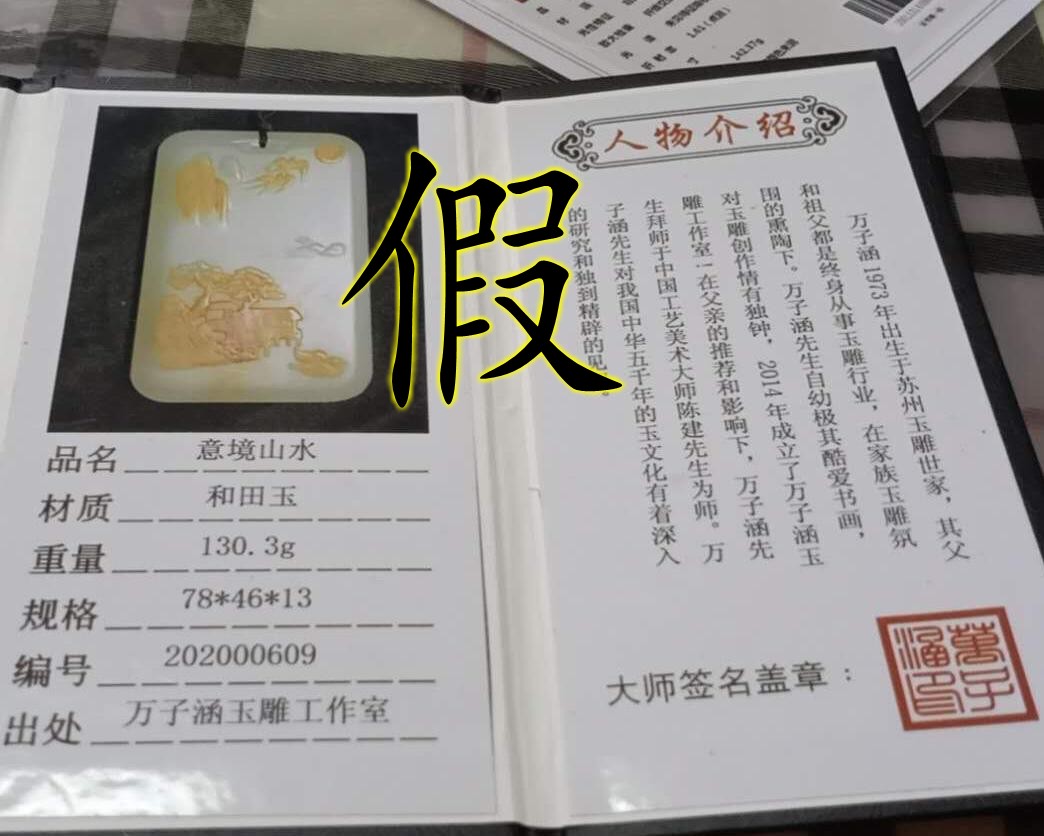 假
品名 意境山水
材质 和田玉
重量 130.3g
规格 78*46*13
编号 202000609
出处 万子涵玉雕工作室
人物介绍
万子涵1973年出生于苏州玉雕世家，其父
和祖父都是终身从事玉雕行业，在家族玉雕氛
围的熏陶下。万子涵先生自幼极其酷爱书画，
对玉雕创作情有独钟，2014年成立了万子涵玉
雕工作室！在父亲的推荐和影响下，万子涵先
生拜师于中国工艺美术大师陈建先生为师。万
子涵先生对我国中华五千年的玉文化有着深入
的研究和独到精辟的见。
大师签名盖章：
萬子涵印
142.37g